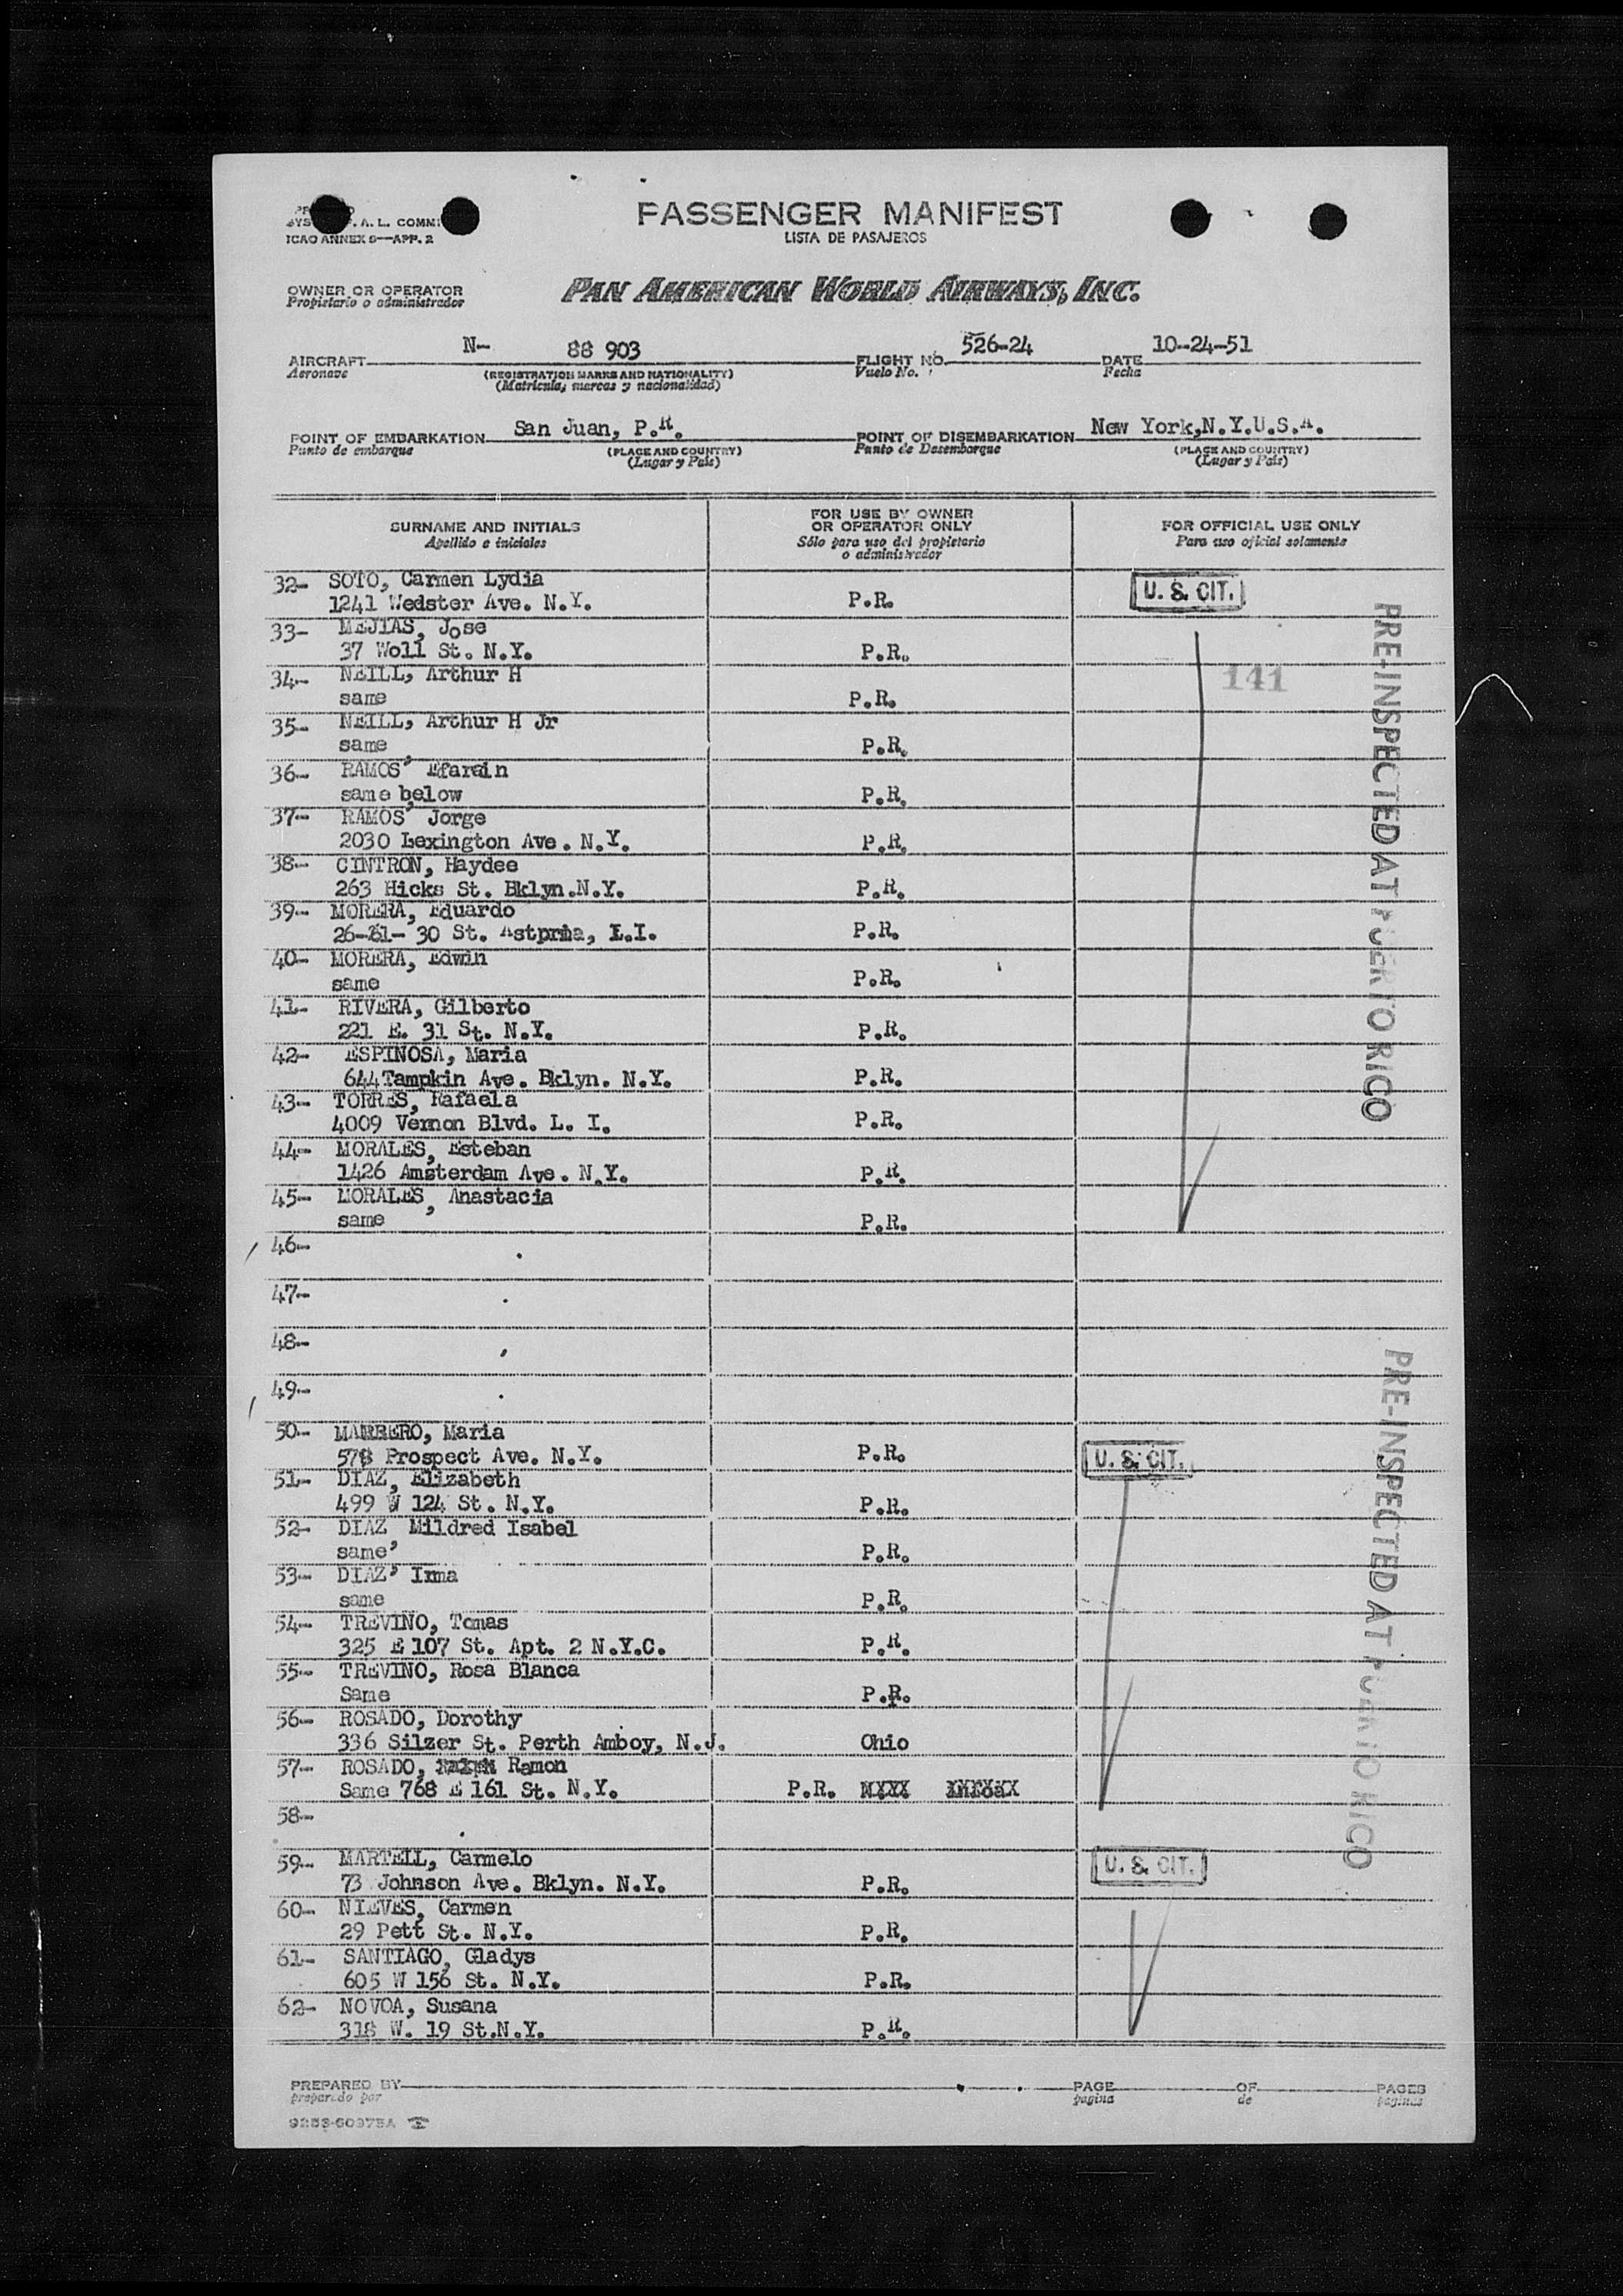 A. L. COMM
ICAO ANNEX 9—APP. 2
PASSENGER MANIFEST
LISTA DE PASAJEROS
OWNER OR OPERATOR
Propietario o administrador
PAN AMERICAN WORLD AIRWAYS, INC.
AIRCRAFT N- 88 903 FLIGHT NO. 526-24 DATE 10-24-51
Aeronave (REGISTRATION MARKS AND NATIONALITY) Vuelo No. Fecha
(Matricula, marcas y nacionalidad)
POINT OF EMBARKATION San Juan, P.R. POINT OF DISEMBARKATION New York,N.Y.U.S.A.
Punto de embarque (PLACE AND COUNTRY) Punto de Desembarque (PLACE AND COUNTRY)
(Lugar y País) (Lugar y País)
SURNAME AND INITIALS
Apellido e iniciales
FOR USE BY OWNER
OR OPERATOR ONLY
Sólo para uso del propietario
o administrador
FOR OFFICIAL USE ONLY
Para uso oficial solamente
32- SOTO, Carmen Lydia
1241 Wedster Ave. N.Y. P.R. U. S. CIT.
33- MEJIAS, Jose
37 Woll St. N.Y. P.R.
34- NEILL, Arthur H 141
same P.R.
35- NEILL, Arthur H Jr
same P.R.
36- RAMOS, Efarain
same below P.R.
37- RAMOS, Jorge
2030 Lexington Ave. N.Y. P.R.
38- CINTRON, Haydee
263 Hicks St. Bklyn.N.Y. P.R.
39- MORERA, Eduardo
30 St. L.I. P.R.
40- MORERA, Edwin
same P.R.
41- RIVERA, Gilberto
221 E. 31 St. N.Y. P.R.
42- ESPINOSA, Maria
644Tampkin Ave. Bklyn. N.Y. P.R.
43- TORRES, Rafaela
4009 Vernon Blvd. L. I. P.R.
44- MORALES, Esteban
1426 Amsterdam Ave. N.Y. P.R.
45- MORALES, Anastacia
same P.R.
PRE-INSPECTED AT PUERTO RICO
46-
47-
48-
49-
50- MARRERO, Maria
578 Prospect Ave. N.Y. P.R. U. S. CIT.
51- DIAZ, Elizabeth
499 W 124 St. N.Y. P.R.
52- DIAZ, Mildred Isabel
same P.R.
53- DIAZ, Irma
same P.R.
54- TREVINO, Tomas
325 E 107 St. Apt. 2 N.Y.C. P.R.
55- TREVINO, Rosa Blanca
Same P.R.
56- ROSADO, Dorothy
336 Silzer St. Perth Amboy, N.J. Ohio
57- ROSADO, Ramon
Same 768 E 161 St. N.Y. P.R.
58-
PRE-INSPECTED AT PUERTO RICO
59- MARTELL, Carmelo U. S. CIT.
73 Johnson Ave. Bklyn. N.Y. P.R.
60- NIEVES, Carmen
29 Pett St. N.Y. P.R.
61- SANTIAGO, Gladys
605 W 156 St. N.Y. P.R.
62- NOVOA, Susana
318 W. 19 St.N.Y. P.R.
PREPARED BY PAGE OF PAGES
preparado por pagina de paginas